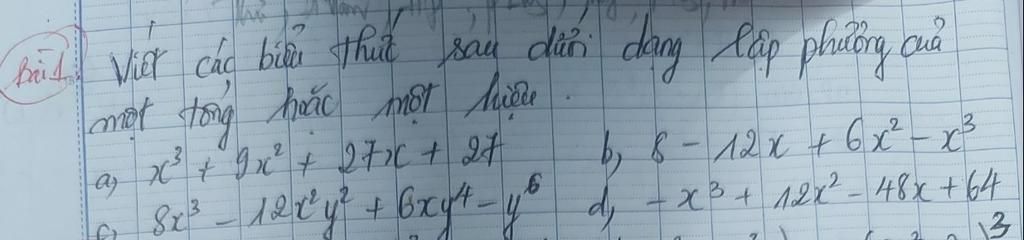 Bài 1 Viết các biểu thức sau dưới dạng lập phương của
một tổng hoặc một hiệu.
a, x³ + 9x² + 27x + 27 b, 8 - 12x + 6x² - x³
c, 8x³ - 12x²y² + 6xy⁴ - y⁶ d, -x³ + 12x² - 48x + 64